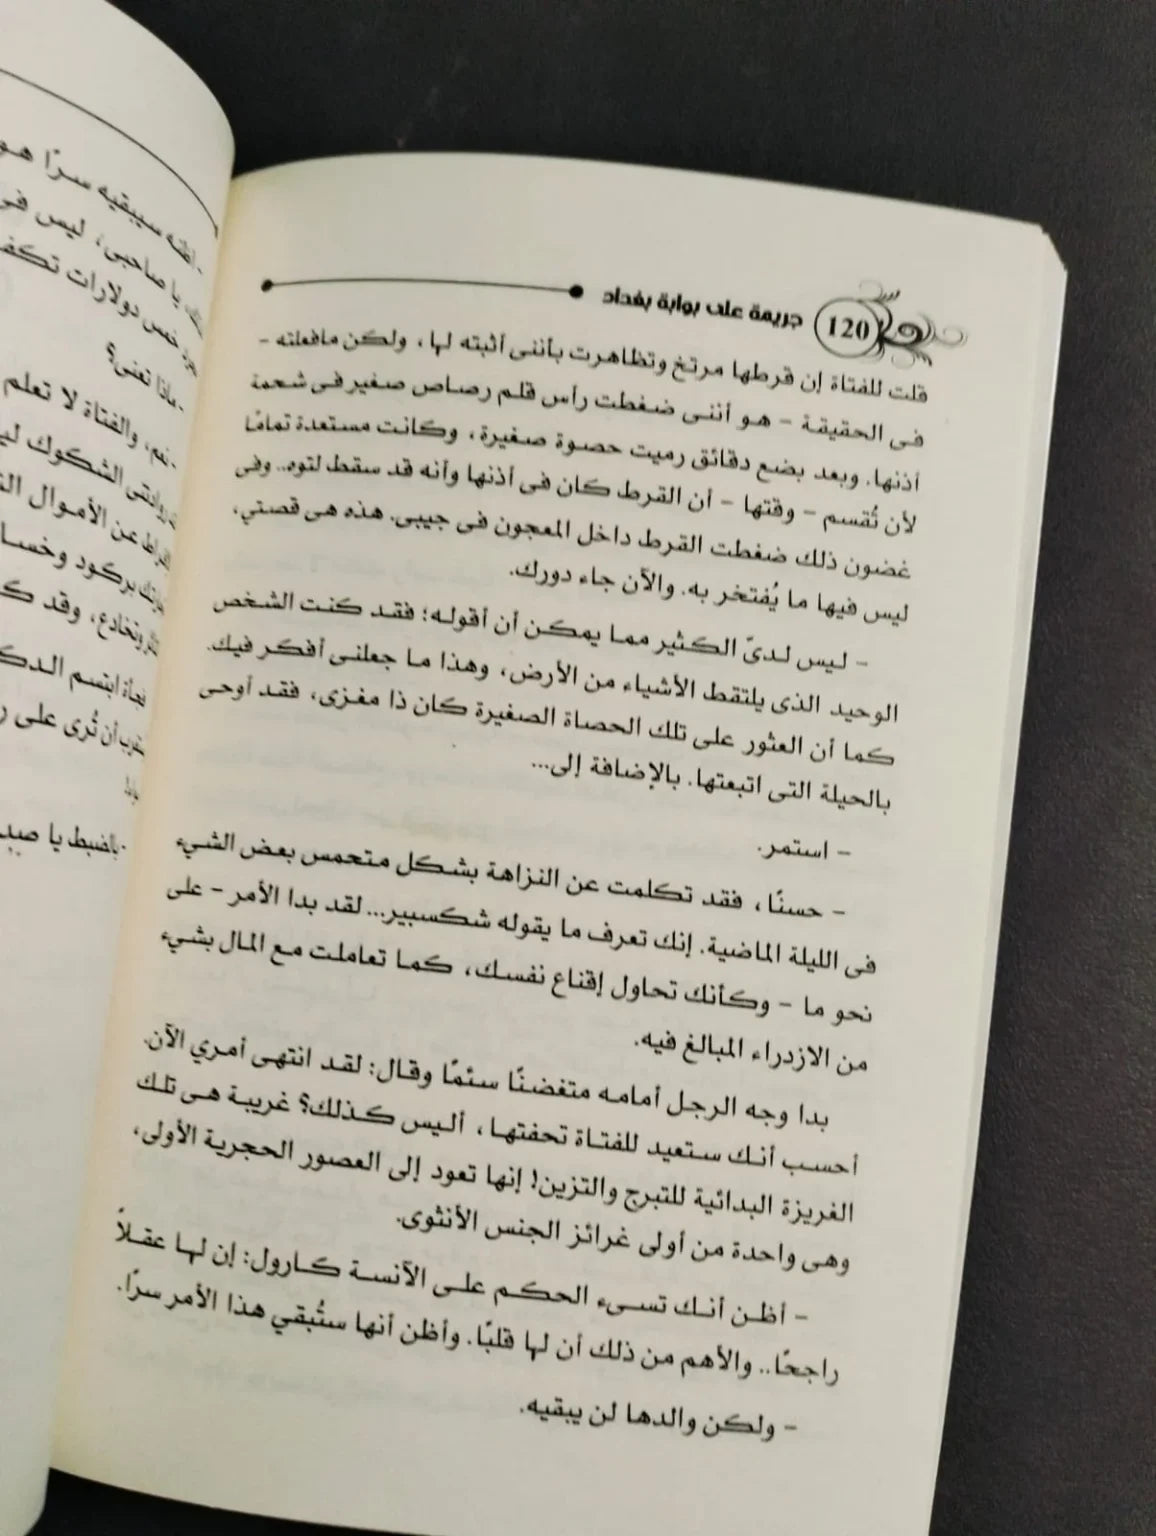 120 جريمة على بوابة بغداد
قلت للفتاة إن قرطها مرتخ وتظاهرت بأننى أثبته لها، ولكن مافعلته -
فى الحقيقة - هو أننى ضغطت رأس قلم رصاص صغير فى شحمة
أذنها. وبعد بضع دقائق رميت حصوة صغيرة، وكانت مستعدة تمامًا
لأن تُقسم - وقتها - أن القرط كان فى أذنها وأنه قد سقط لتوه.. وفى
غضون ذلك ضغطت القرط داخل المعجون فى جيبى. هذه هى قصتي،
ليس فيها ما يُفتخر به. والآن جاء دورك.
- ليس لدىّ الكثير مما يمكن أن أقوله؛ فقد كنت الشخص
الوحيد الذى يلتقط الأشياء من الأرض، وهذا ما جعلنى أفكر فيك.
كما أن العثور على تلك الحصاة الصغيرة كان ذا مغزى، فقد أوحى
بالحيلة التى اتبعتها. بالإضافة إلى...
- استمر.
- حسنًا، فقد تكلمت عن النزاهة بشكل متحمس بعض الشيء
فى الليلة الماضية. إنك تعرف ما يقوله شكسبير... لقد بدا الأمر - على
نحو ما - وكأنك تحاول إقناع نفسك، كما تعاملت مع المال بشيء
من الازدراء المبالغ فيه.
بدا وجه الرجل أمامه متغضنًا سئمًا وقال: لقد انتهى أمري الآن.
أحسب أنك ستعيد للفتاة تحفتها، أليس كذلك؟ غريبة هى تلك
الغريزة البدائية للتبرج والتزين! إنها تعود إلى العصور الحجرية الأولى،
وهى واحدة من أولى غرائز الجنس الأنثوى.
- أظن أنك تسىء الحكم على الآنسة كارول: إن لها عقلاً
راجحًا.. والأهم من ذلك أن لها قلبًا. وأظن أنها ستُبقي هذا الأمر سرًا.
- ولكن والدها لن يبقيه.
- أظنه سيبقيه سرًا
يا صاحبى، ليس فى
خمس دولارات
- ماذا تعنى؟
- نعم، والفتاة لا تعلم
الشكوك
عن الأموال
بركود
وقد
ابتسم
أن تُرى على
- بالضبط يا